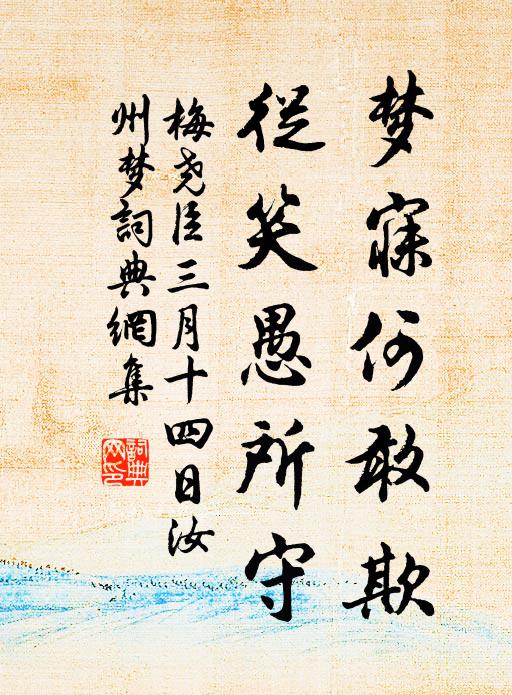 梦寐何敢欺
從笑愚所守
梅尧臣三月十四日汝
州梦詞典網集
詞典
网印